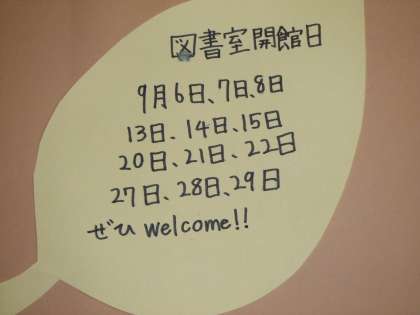 図書室開館日
9月6日、7日、8日
13日、14日、15日
20日、21日、22日
27日、28日、29日
ぜひ welcome!!